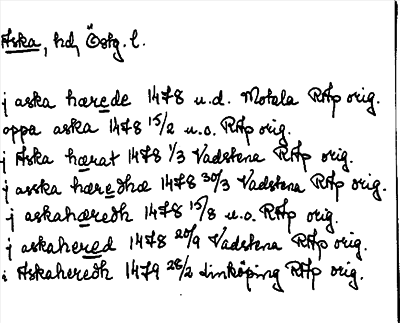 Aska, hd, Östg. l.
j aska hærede 1478 u.d. Motala RAp orig.
oppa aska 1478 15/2 u.o. RAp orig.
j Aska hærat 1478 1/3 Vadstena RAp orig.
j asska hæredhæ 1478 30/3 Vadstena RAp orig.
j askahæredh 1478 15/8 u.o. RAp orig.
j askahered 1478 20/9 Vadstena RAp orig.
i Askaheredh 1479 28/2 Linköping RAp orig.